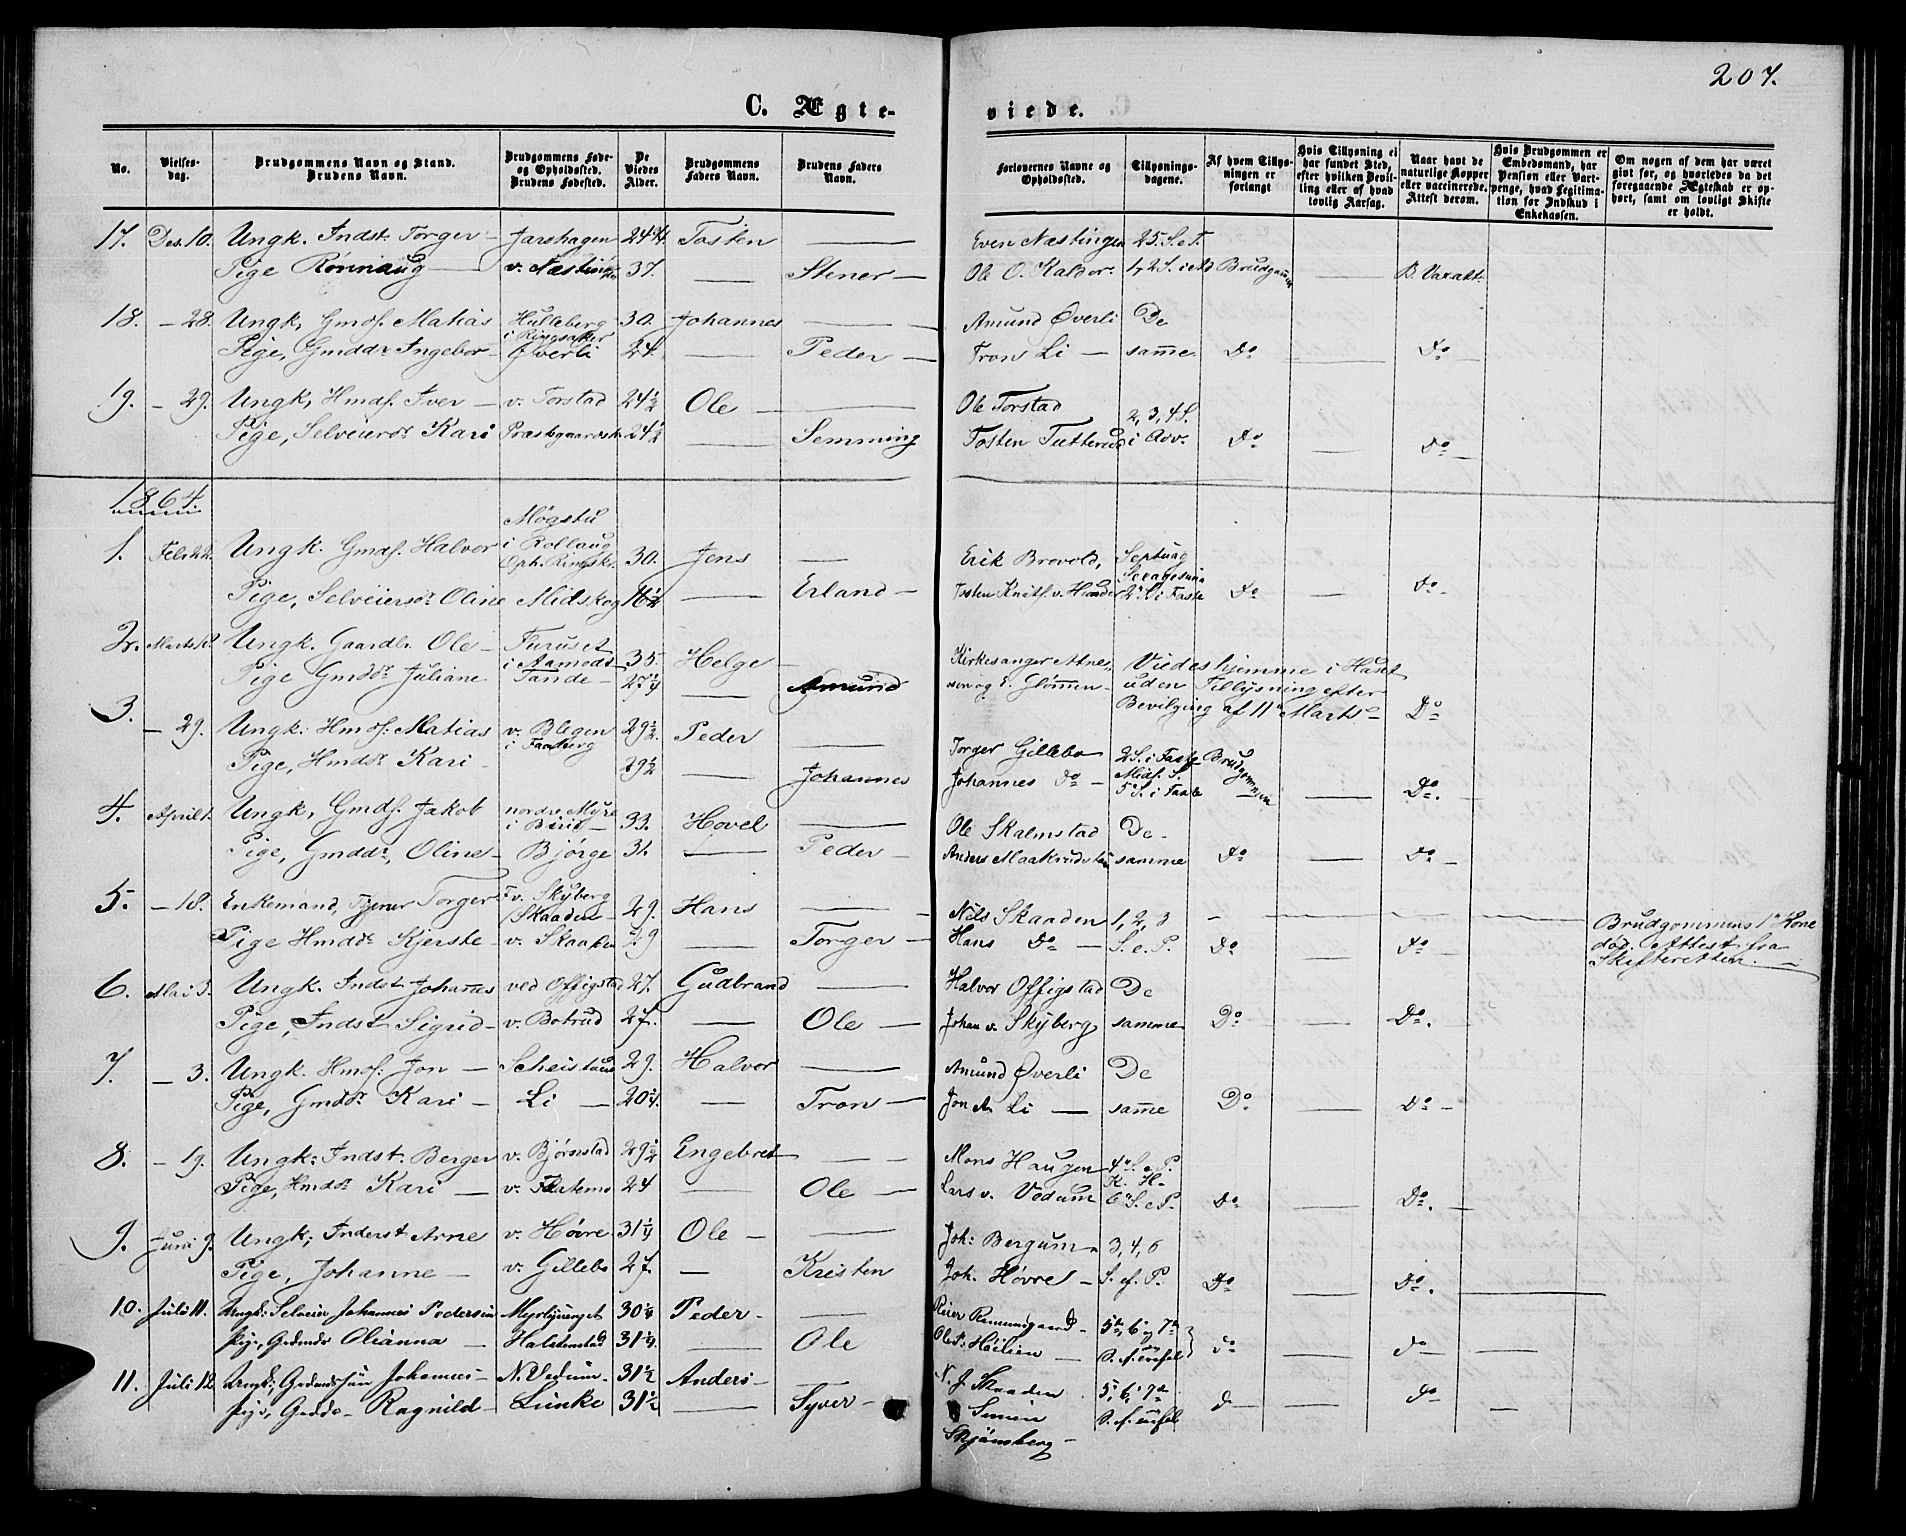 207.
C. Ægte-
viede.
No.
Vielses-
dag.
Brudgommens Navn og Stand.
Brudens Navn.
Brudgommens Føde-
og Opholdssted.
Brudens Fødested.
De
Viedes
Alder.
Brudgommens
Faders Navn.
Brudens Faders
Navn.
Forlovernes Navne og
Opholdssted.
Tillysnings-
dagene.
Af hvem Tillys-
ningen er
forlangt
Hvis Tillysning ei
har fundet Sted,
efter hvilken Bevil-
ling eller af hvad
lovlig Aarsag.
Naar havt de
naturlige Kopper
eller vaccinerede.
Attest derom.
Hvis Brudgommen er
Embedsmand, har
Pension eller Vart-
penge, hvad Legitima-
tion for Indskud i
Enkekassen.
Om nogen af dem har været
givt før, og hvorledes da det
foregaaende Ægteskab er op-
hørt, samt om lovligt Skifte
er holdt.
17. Des. 10. Ungk. Indst. Torger Jarshagen 24 Tosten Even Næstingen 25. S. e. T.
Pige Rønnaug v. Næstingen 37. Stener Ole O. Kaldor 1, 2 S. i Ad Brudgommen B. Vaxatt.
18. - 28. Ungk, Gmds. Matias Hulleberg i Ringsaker 30. Johannes Amund Øverli De
Pige, Gmddr Ingebor Øverli 24. Peder Tron Li samme Do Do
19. - 29. Ungk, Hmds. Iver v. Torstad 24½ Ole Ole Torstad 2, 3, 4 S.
Pige, Selveierdr Kari 24½ Semming Tosten Tutterud i Adv. Do Do
1864.
1. Feb. 22. Ungk. Gmds. Halvor Møgstu i Rollaug Oph. Ringskr. 30. Jens Erik Brovold, Septuag
Pige, Selveiersdr Oline Midskog 16½ Erland Tosten v. Hunder 2 S. i Faste Do Do
2. Marts Ungk. Gaardbr Ole Furuset i Aamodt 35. Helge Kirkesanger Atnes- Viedes hjemme i Huset
Pige Gmddr Juliane Tande 27¼ Amund sen og Glømmen uden Tillysning efter
Bevilging af 11 Marts Do
3. - 29. Ungk: Hmds: Matias v. Blegen i Faaberg 29½ Peder Torger Gillebo 2 S. i Faste Brudgommen
Pige, Hmddr Kari 29½ Johannes Johannes Do Midf. S. 5 S. i Faste Do.
4. April 1. Ungk, Gmds. Jakob nordre Myre i Birid 33. Hovel Ole Skalmstad De
Pige, Gmddr, Oline Bjørge 31. Peder Anders samme Do Do
5. - 18. Enkemand, Torger F. v. Skyberg Skaaden 29. Hans Nils Skaaden 1, 2, 3 Brudgommens 1 Kone
Pige Hmddr Kjerste v. Skaaden 29 Torger Hans Do S. e. P. Do Do død. Attest fra
Skifteretten.
6. Mai 3. Ungk. Indst Johannes ved Offigstad 27. Gudbrand Halvor Offigstad De
Pige, Indst Sigrid v. Botrud 27. Ole Johan v. Skyberg samme Do Do.
7. - 3. Ungk. Hmds: Jon 29. Halvor Amund Øverli De
Pige, Gmddr Kari Li 20¼ Tron Jon A. Li samme Do Do
8. - 19. Ungk: Indst. Berger v. Bjørnstad 29½ Engebret Mons Haugen 4 S. e. P.
Pige, Hmddr Kari v. Flatemo 24 Ole Lars v. Vedum K. H. 6 S. e. P. Do Do.
9. Juni 9. Ungk; Inderst Arne v. Høvre 31¼ Ole Joh: Bergum 3, 4, 6
Pige, Johanne v. Gillebo 27. Kristen Joh. Høvre S. ef. P. Do Do.
10. Juli 11. Ungk: Selveier Johannes Pedersen 30¼ Peder Reier 5, 6, 7
Pige, Olianna Halstenstad 31¼ Ole Do Do
11. Juli 12. Ungk; Johannes N. Vedum 31½ Anders N. J. Skaaden 5, 6, 7
Pige, Ragnild Linke 31½ Syver Simen Do Do
Skjønsberg